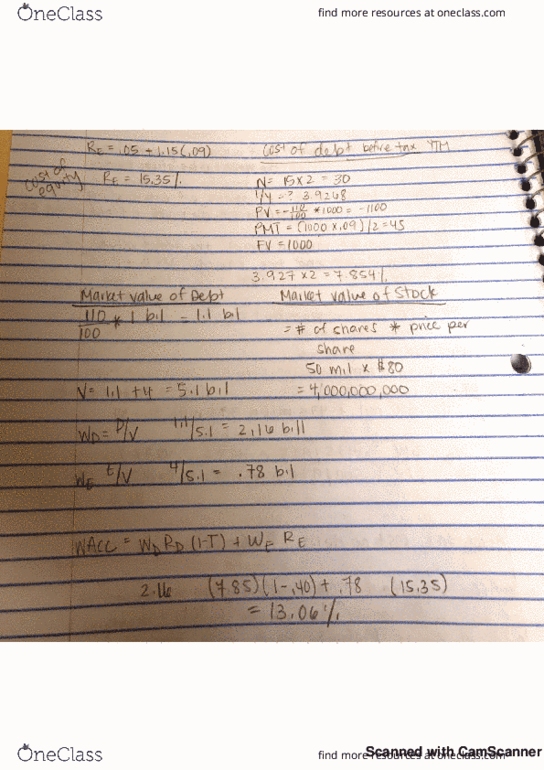 OneClass
find more resources at oneclass.com
RE = .05 + 1.15(.09)
cost of equity
RE = 15.35%
cost of debt before tax YTM
N = 15 x 2 = 30
I/Y = ? 3.9268
PV = -110/100 * 1000 = -1100
PMT = (1000 x .09)/2 = 45
FV = 1000
3.927 x 2 = 7.854%
Market value of Debt
110/100 * 1 bil = 1.1 bil
Market value of Stock
= # of shares * price per
share
50 mil x $80
= 4,000,000,000
V = 1.1 + 4 = 5.1 bil
WD = D/V 1.1/5.1 = 2.16 bill
WE E/V 4/5.1 = .78 bil
WACC = WD RD (1-T) + WE RE
2.16 (7.85)(1-.40) + .78 (15.35)
= 13.06%
OneClass
find more resources at oneclass.com
Scanned with CamScanner